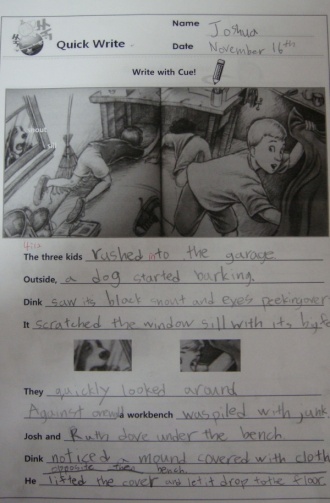 Name Joshua
Quick Write
Date November 16th
Write with Cue!
snout
sill
The three kids rushed into the garage
Outside, a dog started barking.
Dink saw its black snout and eyes peeking over
It scratched the window sill with its
They quickly looked around
Against a workbench was piled with junk
Josh and Ruth dove under the bench
Dink noticed a mound covered with cloth
opposite the bench.
He lifted the cover and let it drop to the floor